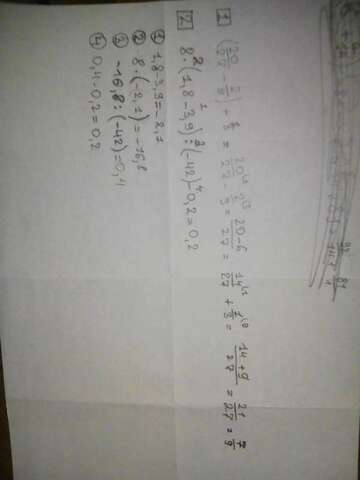 1 (20/27 - 2/9) + 1/3 = 20/27 - 2/9 = 20-6/27 = 14/27 + 1/3 = 14+9/27 = 21/27 = 7/9
2 8·(1,8-3,9):(-42)-0,2=0,2
① 1,8-3,9=-2,1
② 8·(-2,1)=-16,8
③ -16,8:(-42)=0,4
④ 0,4-0,2=0,2